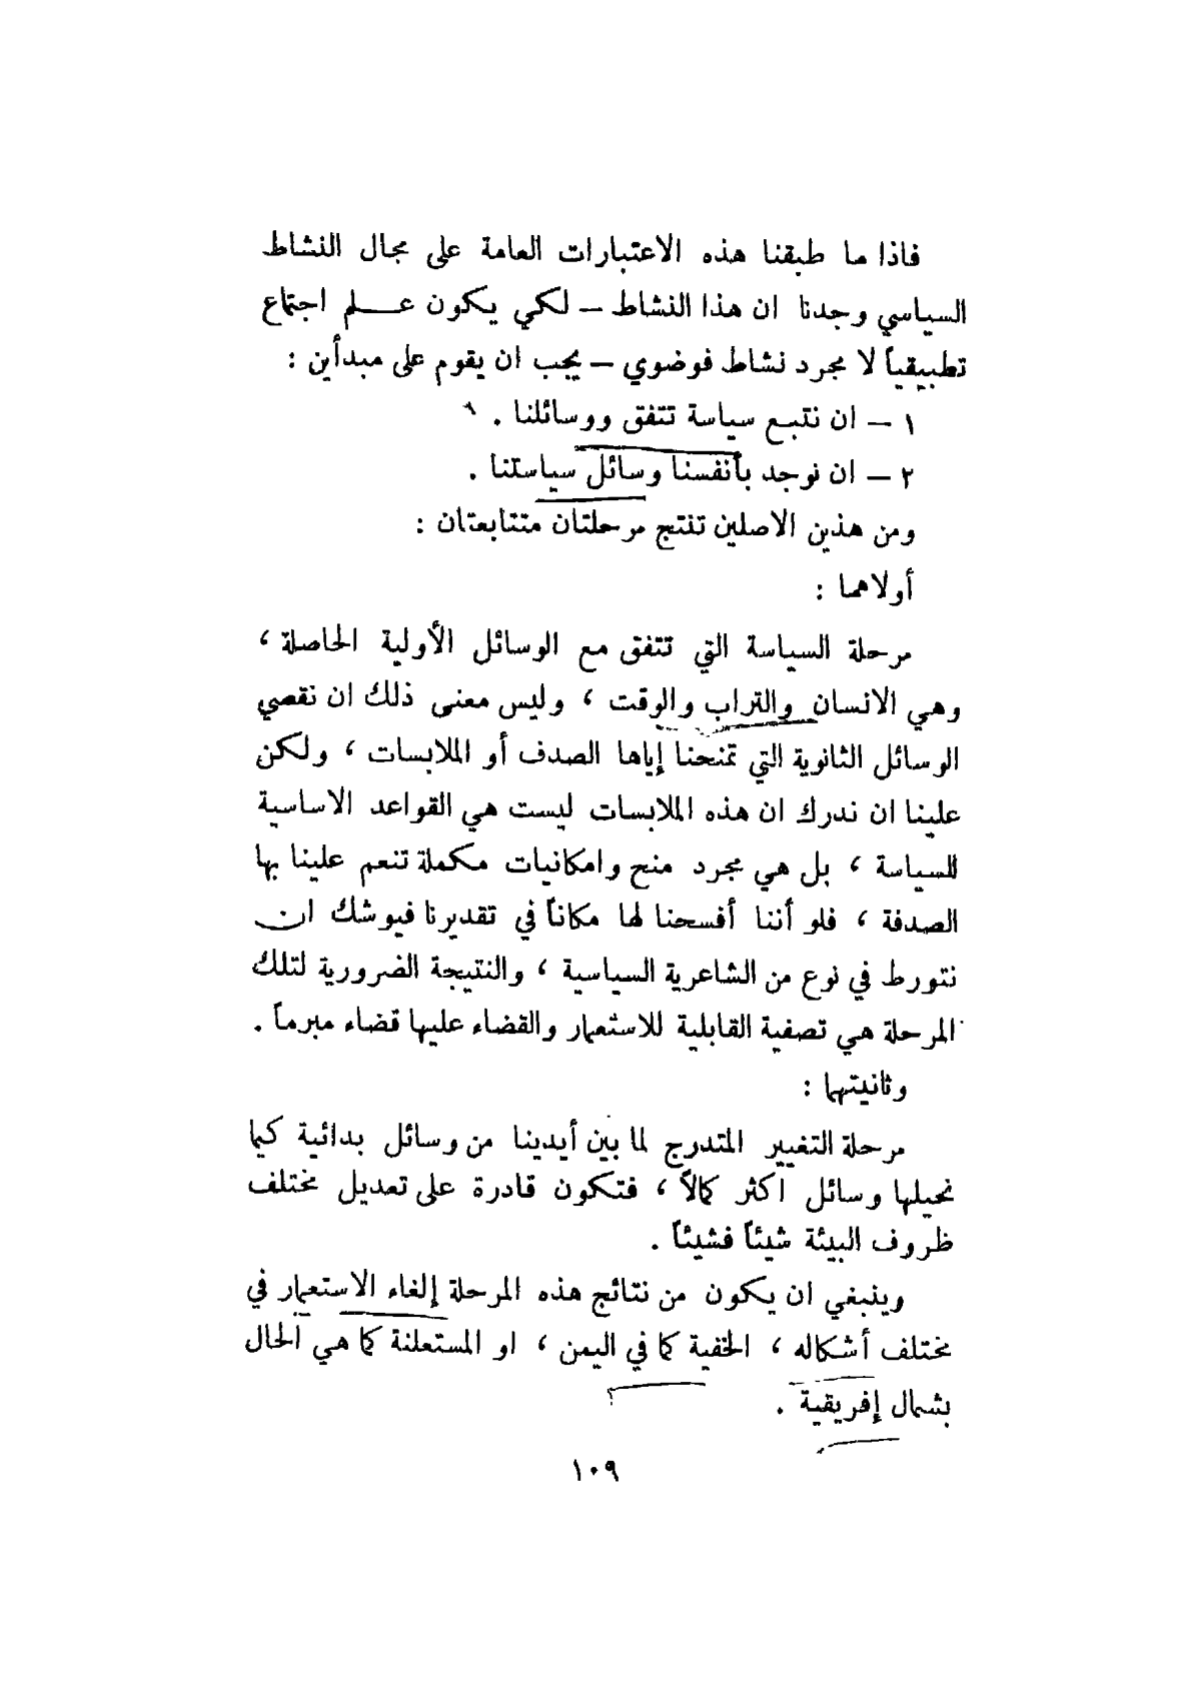 فاذا ما طبقنا هذه الاعتبارات العامة على مجال النشاط
السياسي وجدنا ان هذا النشاط – لكي يكون علم اجتماع
تطبيقياً لا مجرد نشاط فوضوي – يجب ان يقوم على مبدأين :
١ – ان نتبع سياسة تتفق ووسائلنا .
٢ – ان نوجد بأنفسنا وسائل سياستنا .
ومن هذين الاصلين تنتج مرحلتان متتابعتان :
أولاهما :
مرحلة السياسة التي تتفق مع الوسائل الأولية الحاصلة ،
وهي الانسان والتراب والوقت ، وليس معنى ذلك ان نقصي
الوسائل الثانوية التي تمنحنا إياها الصدف أو الملابسات ، ولكن
علينا ان ندرك ان هذه الملابسات ليست هي القواعد الاساسية
للسياسة ، بل هي مجرد منح وامكانيات مكملة تنعم علينا بها
الصدفة ، فلو أننا أفسحنا لها مكاناً في تقديرنا فيوشك ان
نتورط في نوع من الشاعرية السياسية ، والنتيجة الضرورية لتلك
المرحلة هي تصفية القابلية للاستعمار والقضاء عليها قضاء مبرماً .
وثانيتهما :
مرحلة التغيير المتدرج لما بين أيدينا من وسائل بدائية كيما
نحيلها وسائل اكثر كمالاً ، فتكون قادرة على تعديل مختلف
ظروف البيئة شيئاً فشيئاً .
وينبغي ان يكون من نتائج هذه المرحلة إلغاء الاستعمار في
مختلف أشكاله ، الخفية كما في اليمن ، او المستعلنة كما هي الحال
بشمال إفريقية .
١٠٩